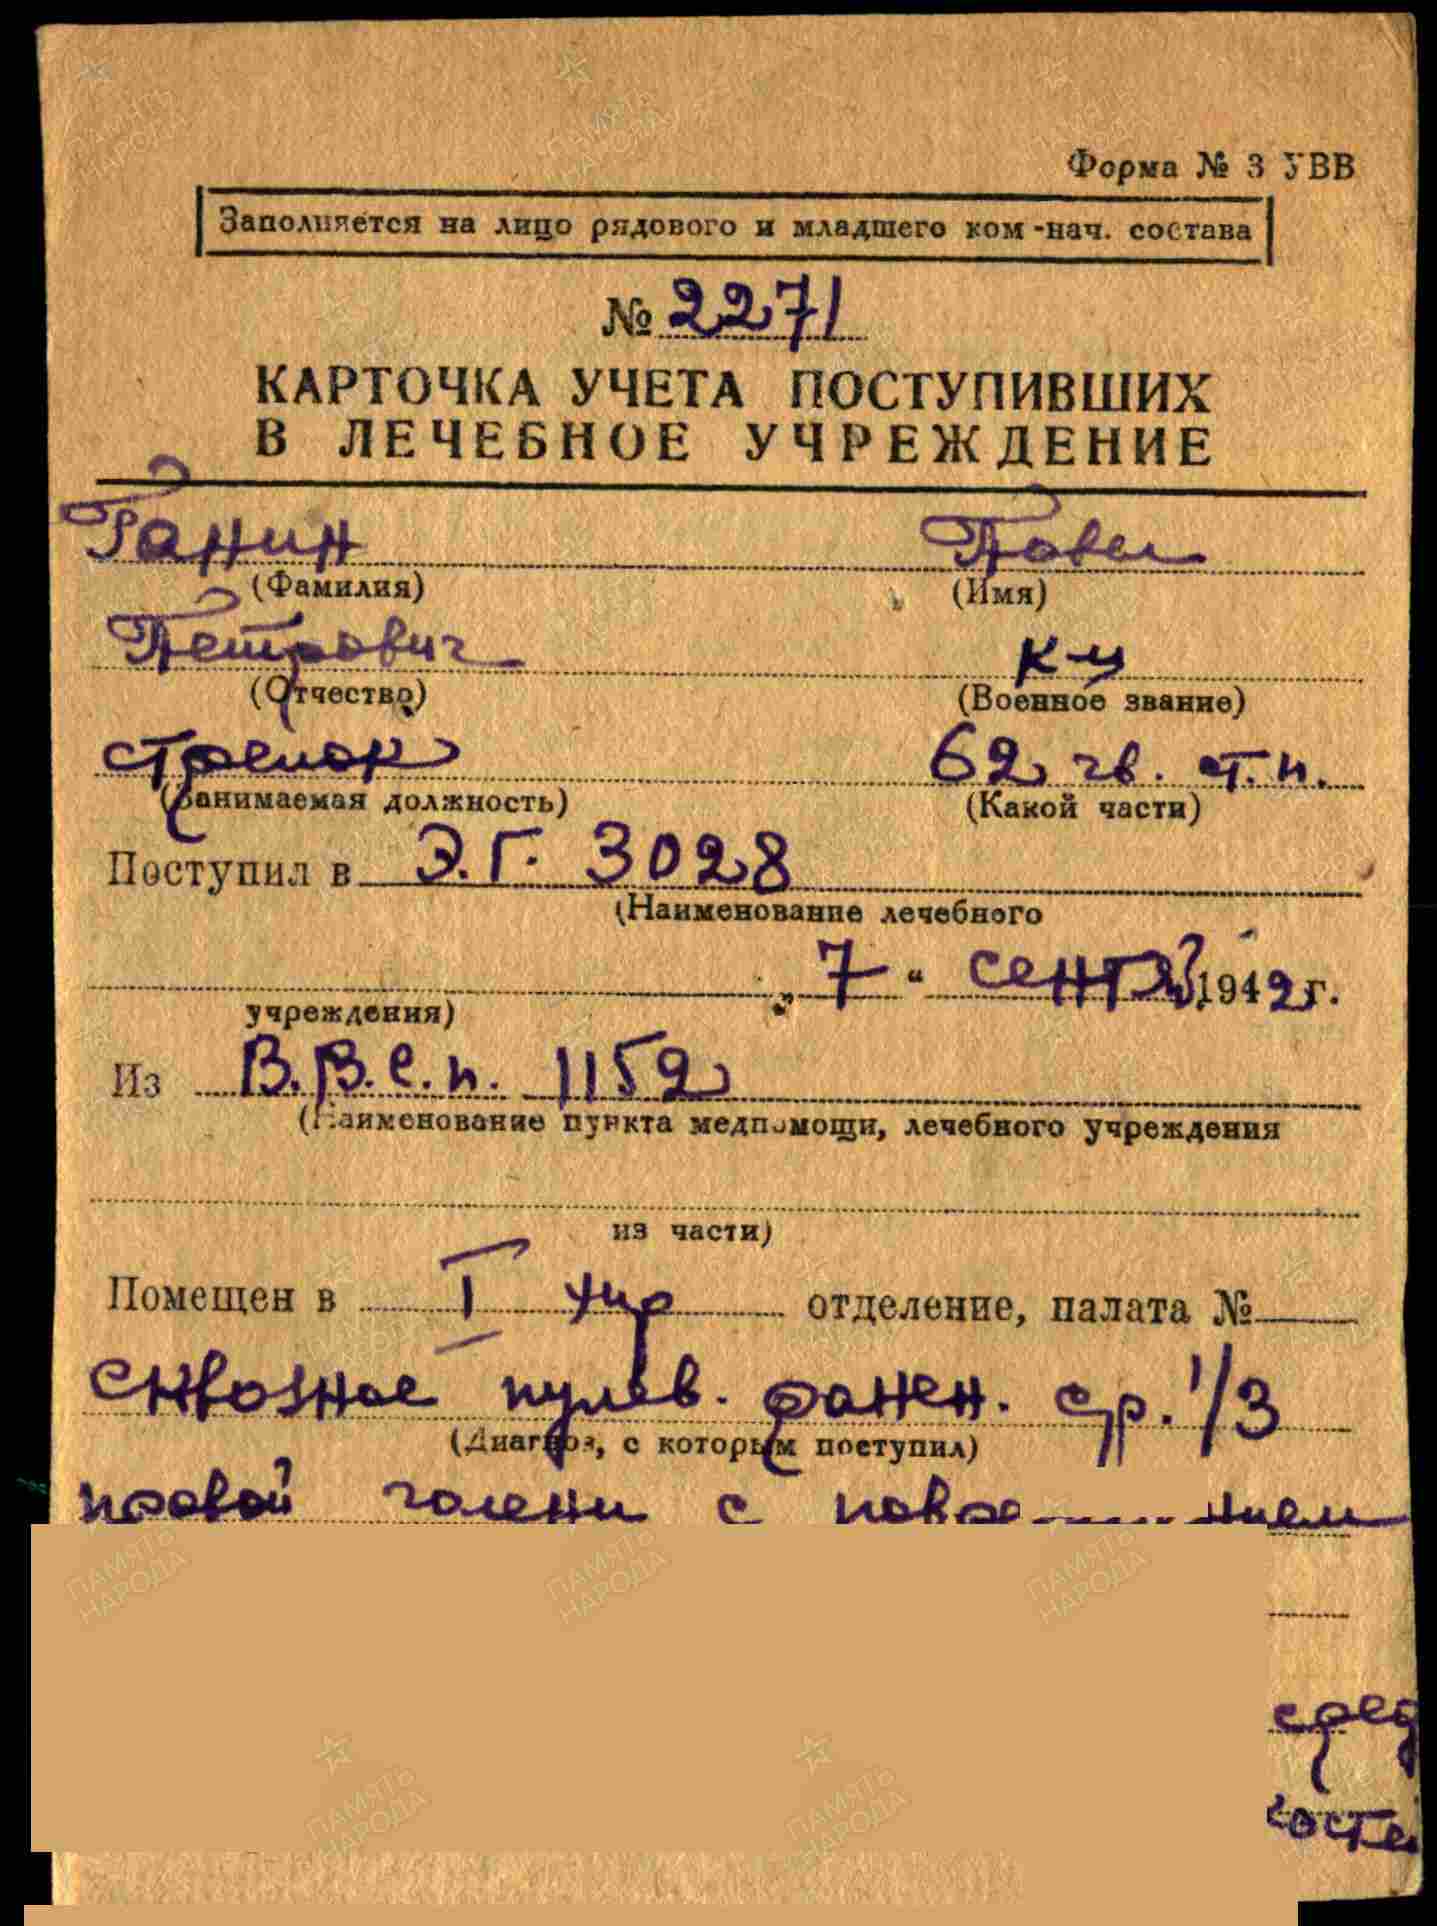 Форма № 3 УВВ
Заполняется на лицо рядового и младшего ком-нач. состава
№ 2271
КАРТОЧКА УЧЕТА ПОСТУПИВШИХ
В ЛЕЧЕБНОЕ УЧРЕЖДЕНИЕ
Ганин Павел
(Фамилия) (Имя)
Петрович к-ц
(Отчество) (Военное звание)
стрелок 62 гв. ст. п.
(Занимаемая должность) (Какой части)
Поступил в Э.Г. 3028
(Наименование лечебного
„ 7 “ сентя 1942 г.
учреждения)
Из В.В.С.п. 1152
(Наименование пункта медпомощи, лечебного учреждения
из части)
Помещен в I хир отделение, палата №
сквозное пулев. ранен. ср. 1/3
(Диагноз, с которым поступил)
правой голени с
сред
костей
ПАМЯТЬ НАРОДА